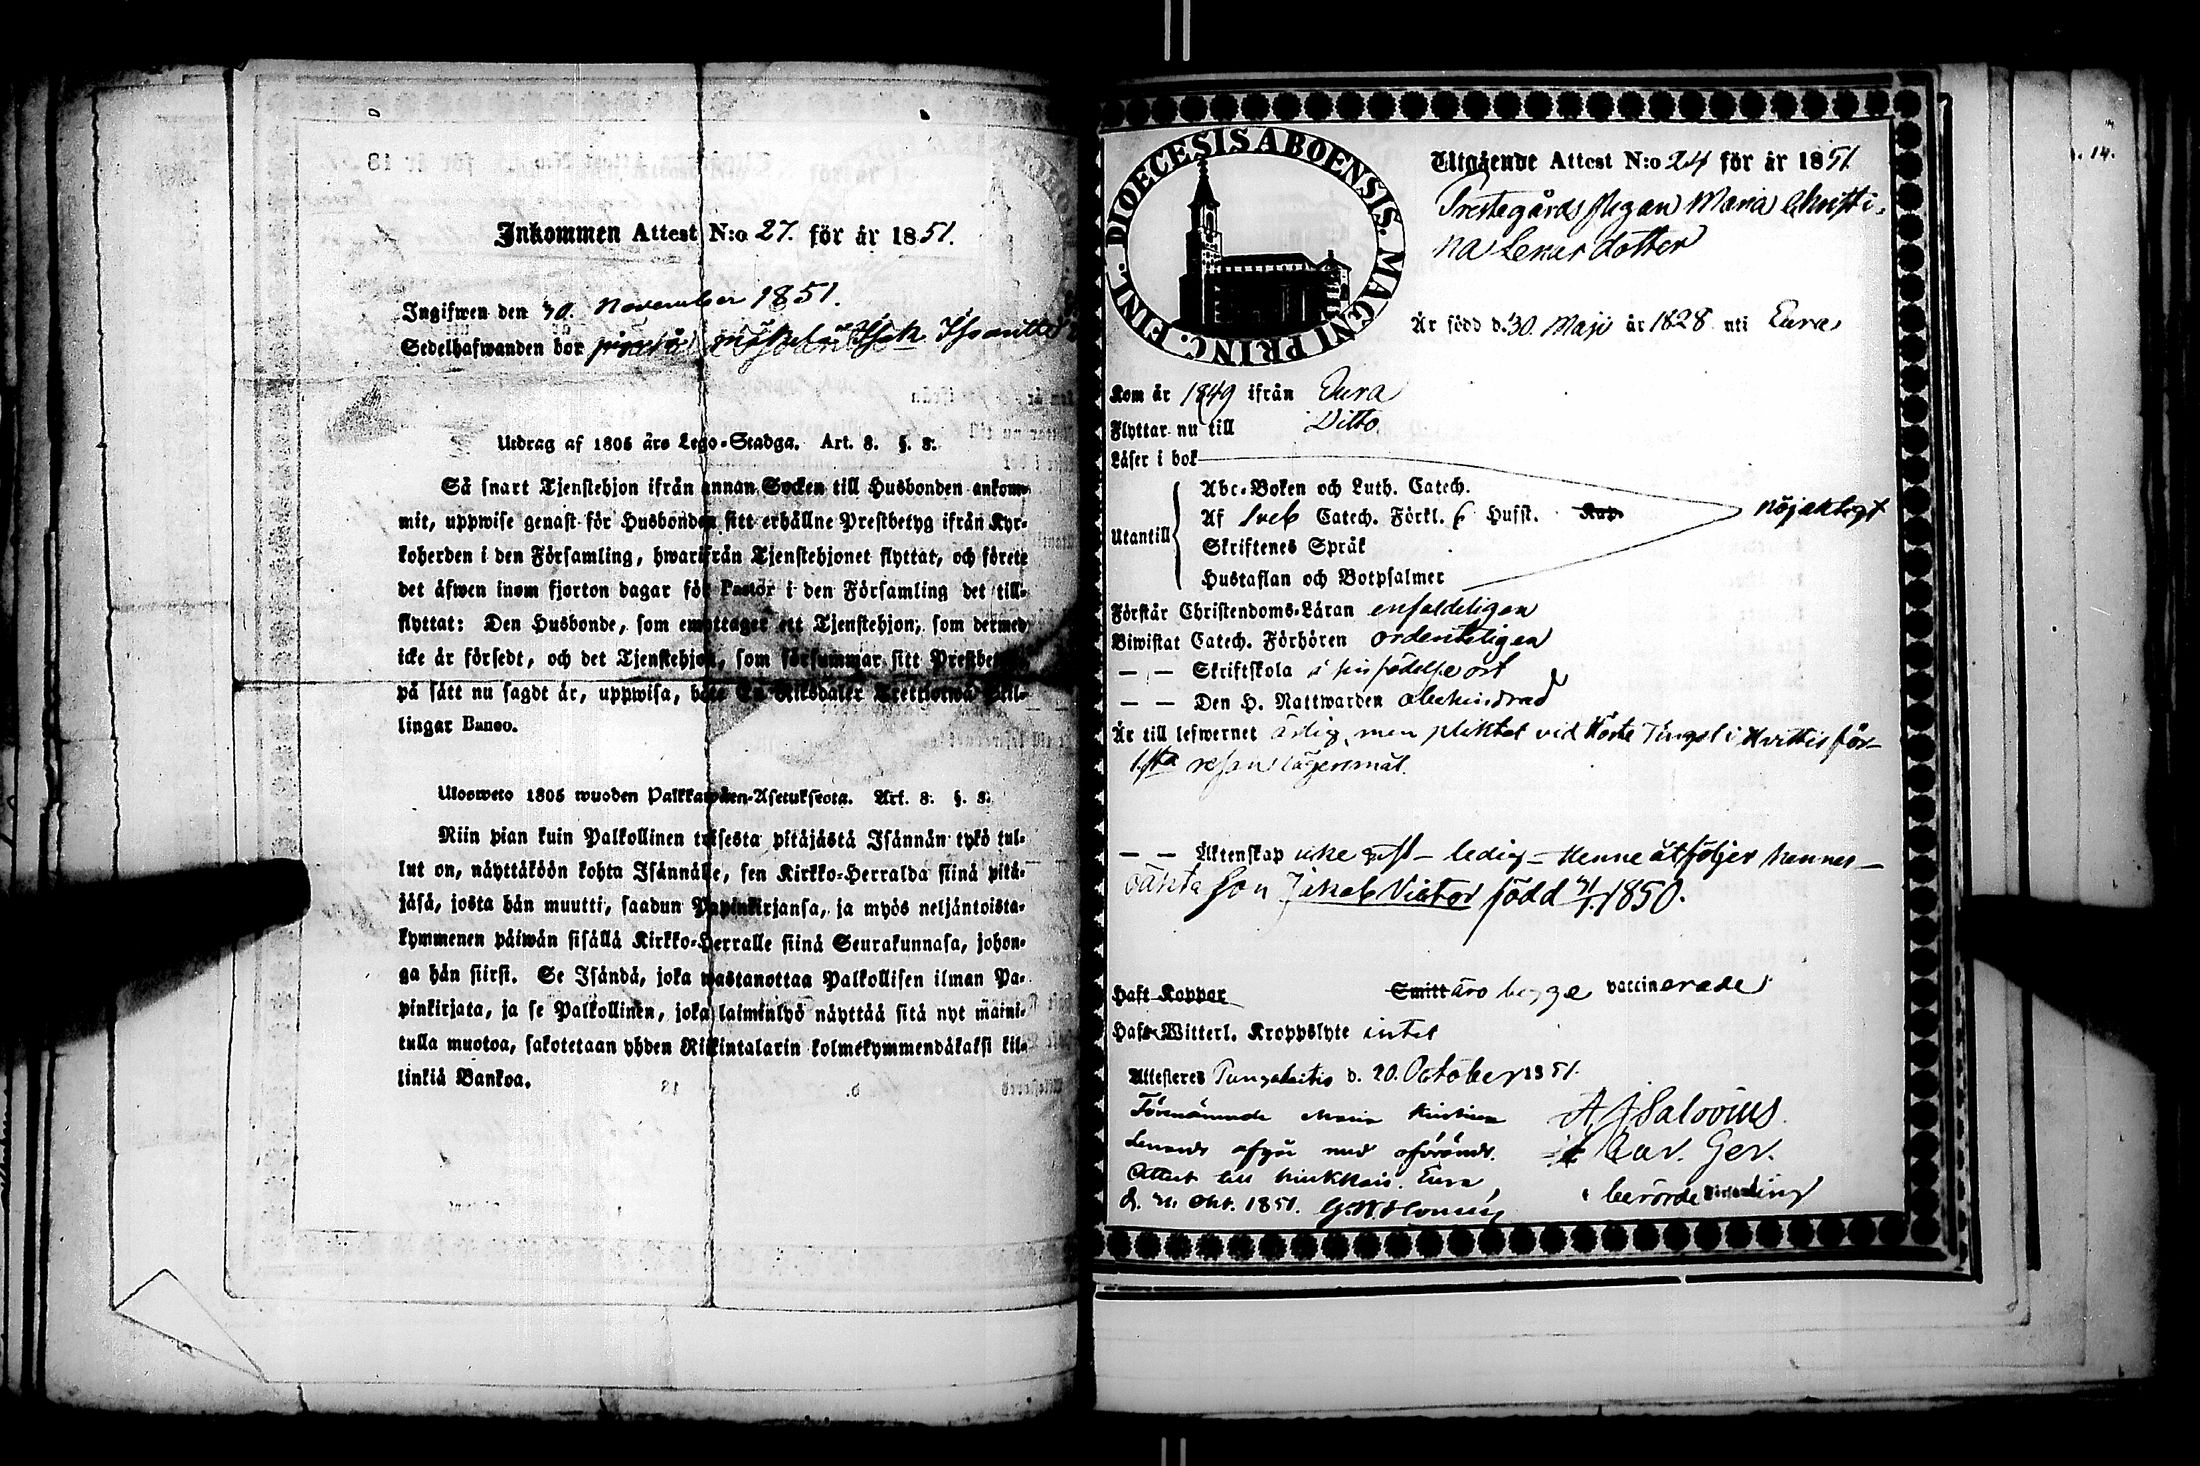 Inkommen Attest N:o 27. för år 1851.
Ingifwen den 30. November 1851.
Sedelhafwanden bor
Utdrag af 1805 års Lego-Stadga. Art. 8. §. 8.
Så snart Tjenstehjon ifrån annan Socken till Husbonden ankom-
mit, uppwise genast för Husbonden sitt erhållne Prestbetyg ifrån Kyr-
koherden i den Församling, hwarifrån Tjenstehjonet flyttat, och förete
det äfwen inom fjorton dagar för Pastor i den Församling det till-
flyttat: Den Husbonde, som emottager ett Tjenstehjon, som dermed
icke är försedt, och det Tjenstehjon, som försummar sitt Prestbetyg,
på sätt nu sagdt är, uppwisa, böte En Riksdaler Trettiotwå Skil-
lingar Banco.
Ulosweto 1805 wuoden Palkkawäen-Asetuksesta. Art. 8. §. 8.
Niin pian kuin Palkollinen toisesta pitäjästä Isännän tykö tul-
lut on, näyttäköön kohta Isännälle, sen Kirkko-Herralda siinä pitä-
jäsä, josta hän muutti, saadun Papinkirjansa, ja myös neljäntoista-
kymmenen päiwän sisällä Kirkko-Herralle siinä Seurakunnasa, johon-
ga hän siirsi. Se Isändä, joka wastanottaa Palkollisen ilman Pa-
pinkirjata, ja se Palkollinen, joka laiminlyö näyttää sitä nyt maini-
tulla muotoa, sakotetaan yhden Riikintalarin kolmekymmendäkaksi kil-
linkiä Bankoa.
DIOECESIS ABOENSIS. MAGNI PRINC. FINL.
Utgående Attest N:o 24 för år 1851
Prestegårds pigan Maria Christi-
na Lenas dotter
Är född d. 30. Maji år 1828 uti Eura
Kom år 1849 ifrån Eura
Flyttar nu till Ditto
Läser i bok
Abc-Boken och Luth. Catech.
Utantill Af Sveb Catech. Förkl. 6 Husst. Kap. nöjaktigt
Skriftenes Språk
Hustaflan och Botpsalmer
Förstår Christendoms-Läran enfaldeligen
Biwistat Catech. Förhören ordenteligen
— — Skriftskola å sin födelse ort
— — Den H. Nattwarden obehindrad
Är till lefwernet ärlig, men pliktat vid Höste Tinget i Hvittis för
1sta resan lägersmål.
— — Äktenskap icke gift — ledig — Henne åtföljer hennes
oäkta son Jakob Victor född 31/1.1850.
Haft Koppor Smitt äro begge vaccinerade
Haft Witterl. Kroppslyte intet
Attesteras Pungalaitio d. 20. October 1851.
Förenämnde Maria Kristina A J Salovius
Lenasdr afgår med oförändr. Car. Ger.
Attest till Eura i berörde Församling
d. Okt. 1851.